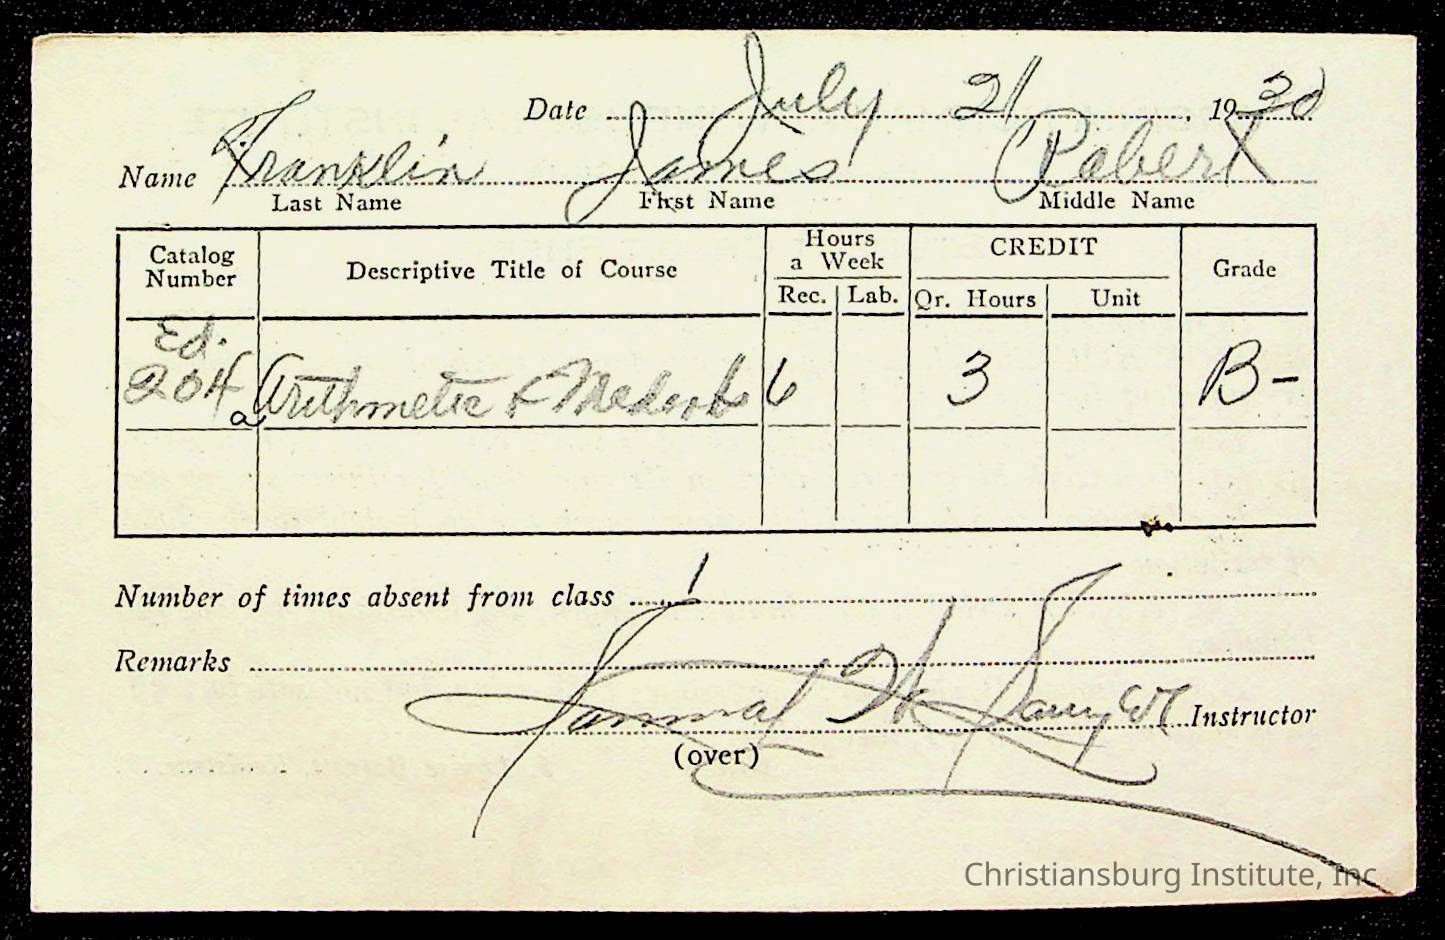 Date July 21, 1930
Name Franklin James Robert
Last Name First Name Middle Name
Catalog Number Descriptive Title of Course Hours a Week CREDIT Grade
Rec. Lab. Qr. Hours Unit
Ed. 204a Arithmetic & Methods 6 3 B-
Number of times absent from class 1
Remarks
Instructor
(over)
Christiansburg Institute, Inc